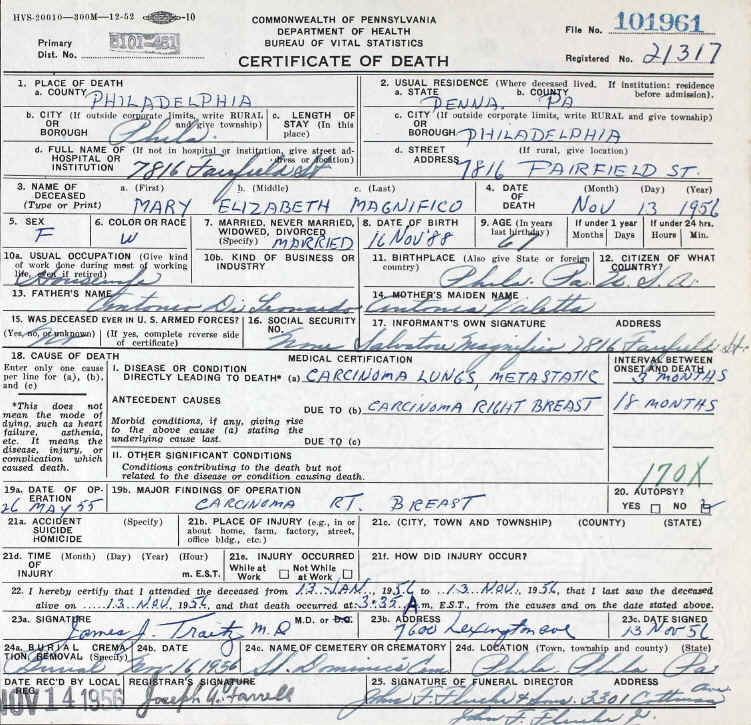 HVS-20010—300M—12-52 -10
COMMONWEALTH OF PENNSYLVANIA
DEPARTMENT OF HEALTH
BUREAU OF VITAL STATISTICS
CERTIFICATE OF DEATH
File No. 101961
Registered No. 21317
Primary
Dist. No. 5101-451
1. PLACE OF DEATH
a. COUNTY PHILADELPHIA
2. USUAL RESIDENCE (Where deceased lived. If institution: residence before admission).
a. STATE PENNA. b. COUNTY PA
b. CITY (If outside corporate limits, write RURAL and give township)
OR
BOROUGH Phila.
c. LENGTH OF STAY (In this place)
c. CITY (If outside corporate limits, write RURAL and give township)
OR
BOROUGH PHILADELPHIA
d. FULL NAME OF (If not in hospital or institution, give street address or location)
HOSPITAL OR
INSTITUTION 7816 Fairfield St
d. STREET (If rural, give location)
ADDRESS 7816 FAIRFIELD ST.
3. NAME OF DECEASED (Type or Print)
a. (First) b. (Middle) c. (Last)
MARY ELIZABETH MAGNIFICO
4. DATE OF DEATH (Month) (Day) (Year)
NOV 13 1956
5. SEX
F
6. COLOR OR RACE
W
7. MARRIED, NEVER MARRIED, WIDOWED, DIVORCED (Specify) MARRIED
8. DATE OF BIRTH
16 NOV '88
9. AGE (In years last birthday) 67
If under 1 year
Months Days
If under 24 hrs.
Hours Min.
10a. USUAL OCCUPATION (Give kind of work done during most of working life, even if retired)
Housewife
10b. KIND OF BUSINESS OR INDUSTRY
11. BIRTHPLACE (Also give State or foreign country)
Phila. Pa.
12. CITIZEN OF WHAT COUNTRY?
U. S. A.
13. FATHER'S NAME
Antonio Di Leonardo
14. MOTHER'S MAIDEN NAME
Antonia Valetta
15. WAS DECEASED EVER IN U. S. ARMED FORCES?
(Yes, no, or unknown) (If yes, complete reverse side of certificate)
no
16. SOCIAL SECURITY NO.
None
17. INFORMANT'S OWN SIGNATURE ADDRESS
Salvatore Magnifico 7816 Fairfield St.
18. CAUSE OF DEATH
Enter only one cause per line for (a), (b), and (c)
*This does not mean the mode of dying, such as heart failure, asthenia, etc. It means the disease, injury, or complication which caused death.
MEDICAL CERTIFICATION
I. DISEASE OR CONDITION
DIRECTLY LEADING TO DEATH* (a) CARCINOMA LUNGS, METASTATIC
INTERVAL BETWEEN ONSET AND DEATH
3 MONTHS
ANTECEDENT CAUSES
DUE TO (b) CARCINOMA RIGHT BREAST
18 MONTHS
Morbid conditions, if any, giving rise to the above cause (a) stating the underlying cause last.
DUE TO (c)
II. OTHER SIGNIFICANT CONDITIONS
Conditions contributing to the death but not related to the disease or condition causing death.
170X
19a. DATE OF OPERATION
26 MAY 55
19b. MAJOR FINDINGS OF OPERATION
CARCINOMA RT. BREAST
20. AUTOPSY?
YES NO
21a. ACCIDENT (Specify)
SUICIDE
HOMICIDE
21b. PLACE OF INJURY (e.g., in or about home, farm, factory, street, office bldg., etc.)
21c. (CITY, TOWN AND TOWNSHIP) (COUNTY) (STATE)
21d. TIME (Month) (Day) (Year) (Hour)
OF
INJURY m. E.S.T.
21e. INJURY OCCURRED
While at Work Not While at Work
21f. HOW DID INJURY OCCUR?
22. I hereby certify that I attended the deceased from 13 JAN, 1956 to 13 NOV., 1956, that I last saw the deceased
alive on 13 NOV, 1956, and that death occurred at 3:35 A.m, E.S.T., from the causes and on the date stated above.
23a. SIGNATURE M.D. or D.O.
James J. Traitz M.D
23b. ADDRESS
7600 Lexington ave
23c. DATE SIGNED
13 Nov 56
24a. BURIAL, CREMATION, REMOVAL (Specify)
Burial
24b. DATE
Nov 16 1956
24c. NAME OF CEMETERY OR CREMATORY
St. Dominics Cem
24d. LOCATION (Town, township and county) (State)
Phila Phila Pa
DATE REC'D BY LOCAL REG.
NOV 14 1956
REGISTRAR'S SIGNATURE
Joseph A. Farrell
25. SIGNATURE OF FUNERAL DIRECTOR ADDRESS
John F. & Sons. 3301 Cottman Ave
John F.